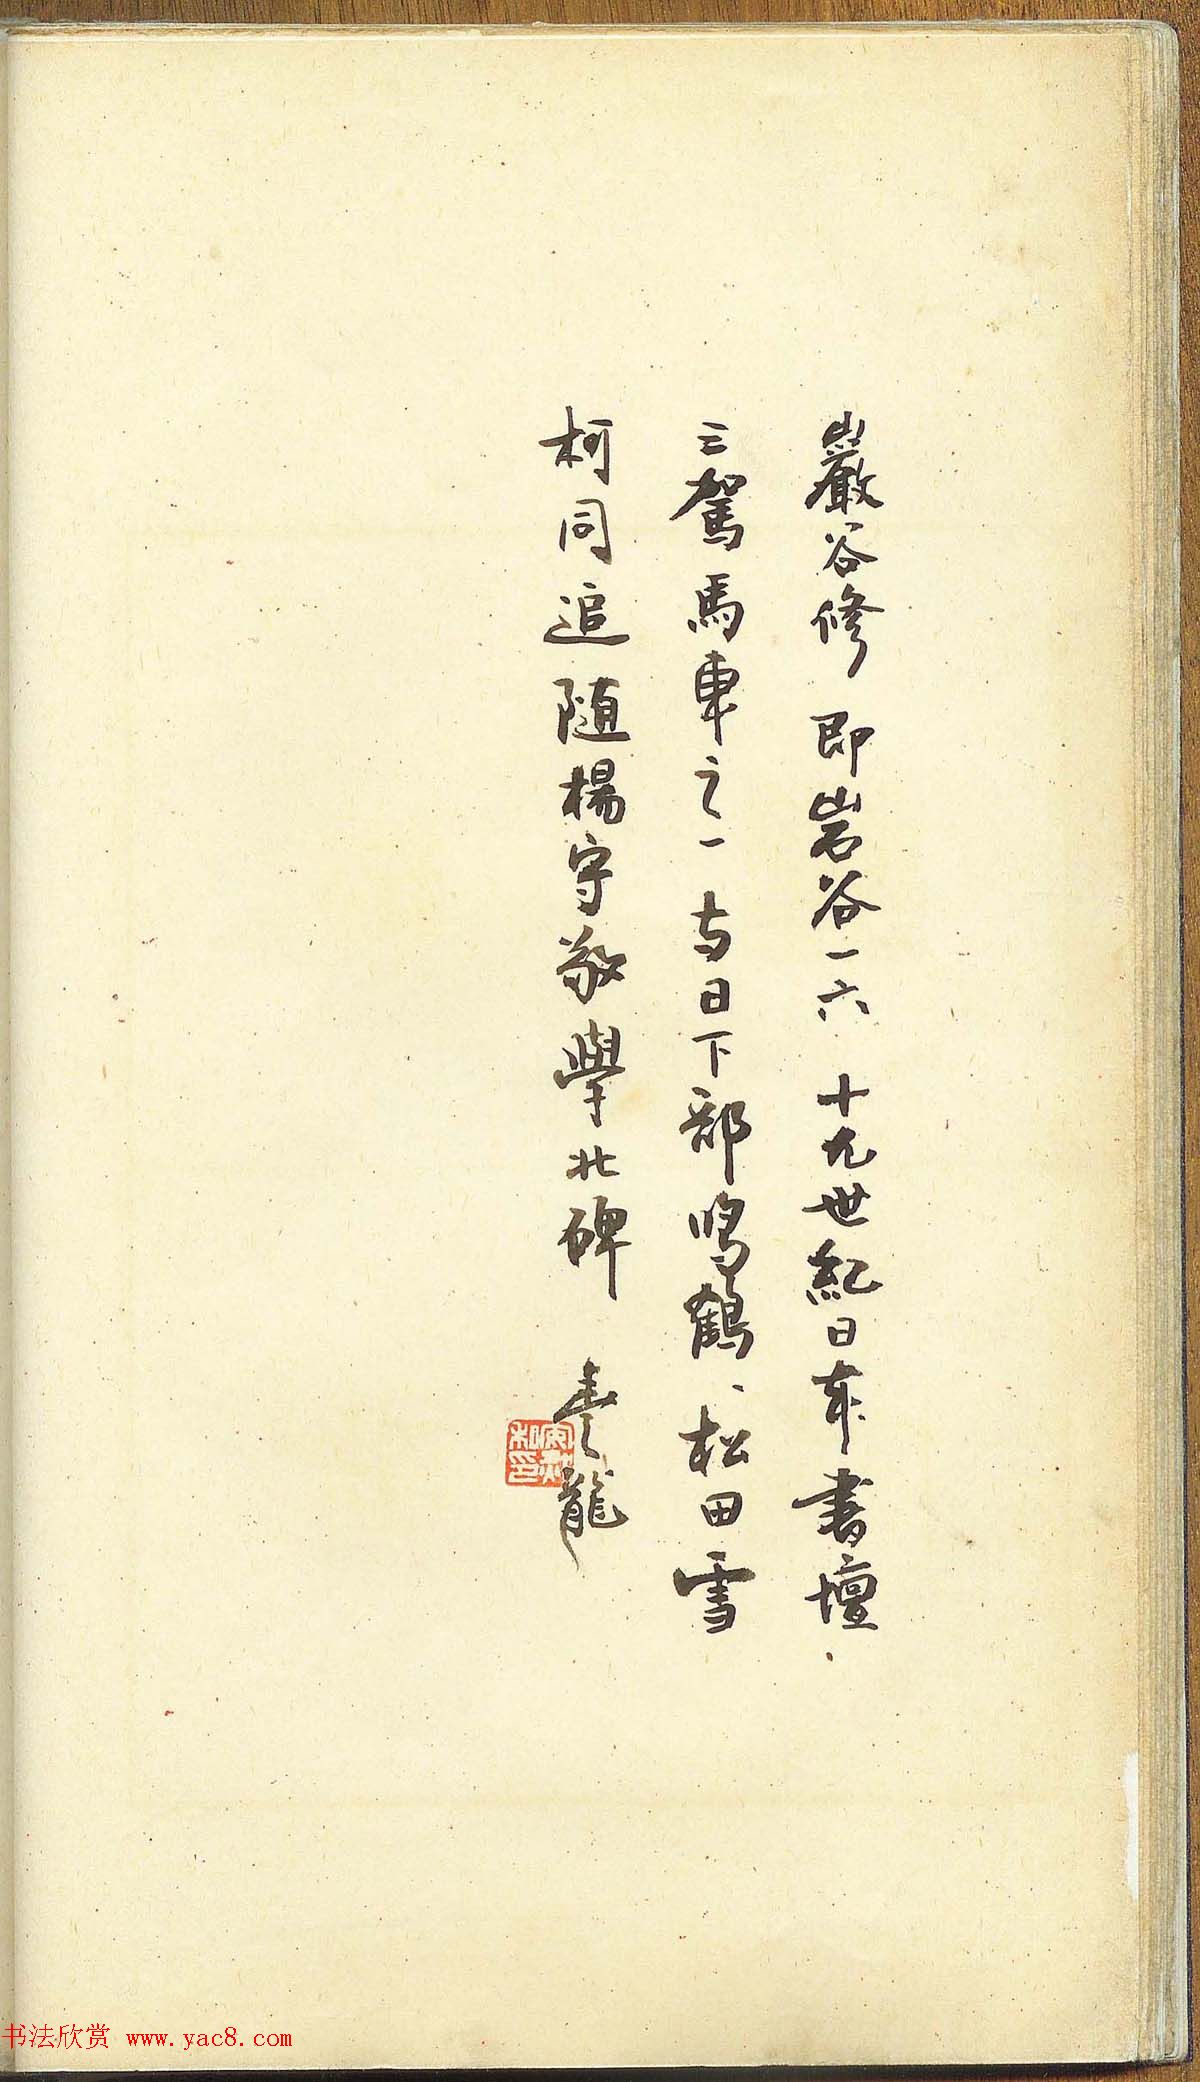 巖谷修 即岩谷一六 十九世紀日本書壇
三駕馬車之一 与日下部鳴鶴、松田雪
柯同追随楊守敬學北碑 春龍
书法欣赏 www.yac8.com